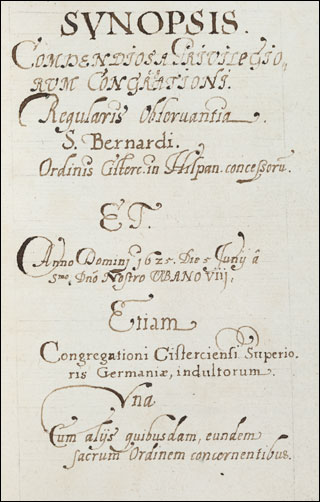 SYNOPSIS.
COMPENDIOSA PRIVILEGIO,,
RUM CONGRATIONI.
Regularis Observantia
S. Bernardi.
Ordinis Cisterc. in Hispan. concessoru.
ET.
Anno Domini 1625. Die 5 Junij á
Smo. Dno Nostro URBANO VIII,
Etiam
Congregationi Cisterciensi Superio.
ris Germaniæ, indultorum.
Vna
Cum alijs quibusdam, eundem
sacrum Ordinem concernentibus.